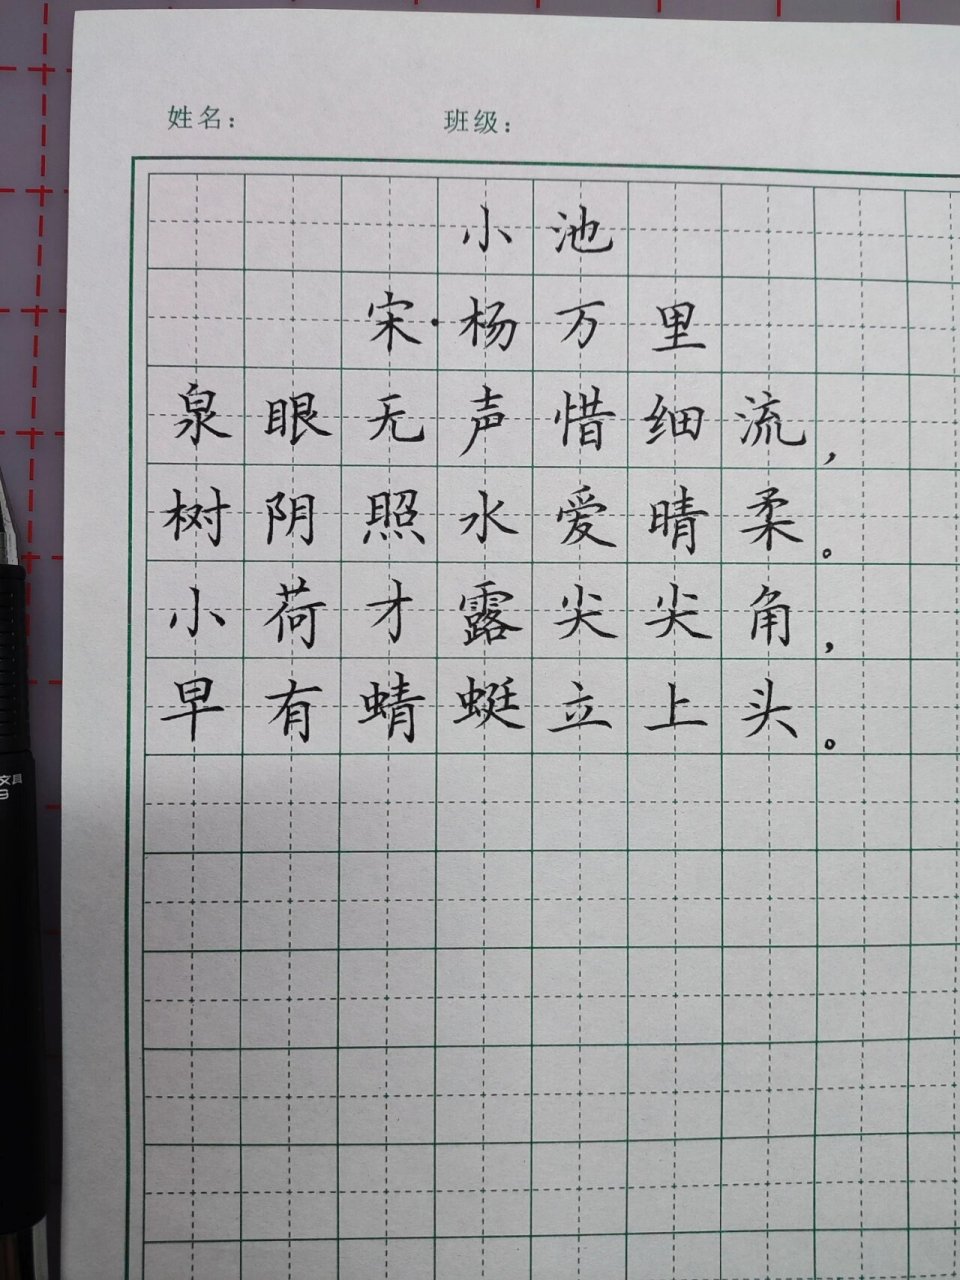 姓名： 班级：
小池
宋·杨万里
泉眼无声惜细流，
树阴照水爱晴柔。
小荷才露尖尖角，
早有蜻蜓立上头。
文具